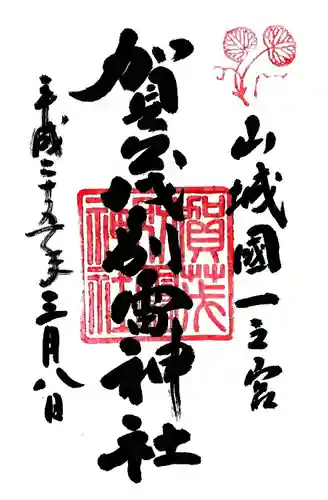 山城國一之宮
賀茂別雷神社
平成二十五年三月八日
賀茂
別雷
神社